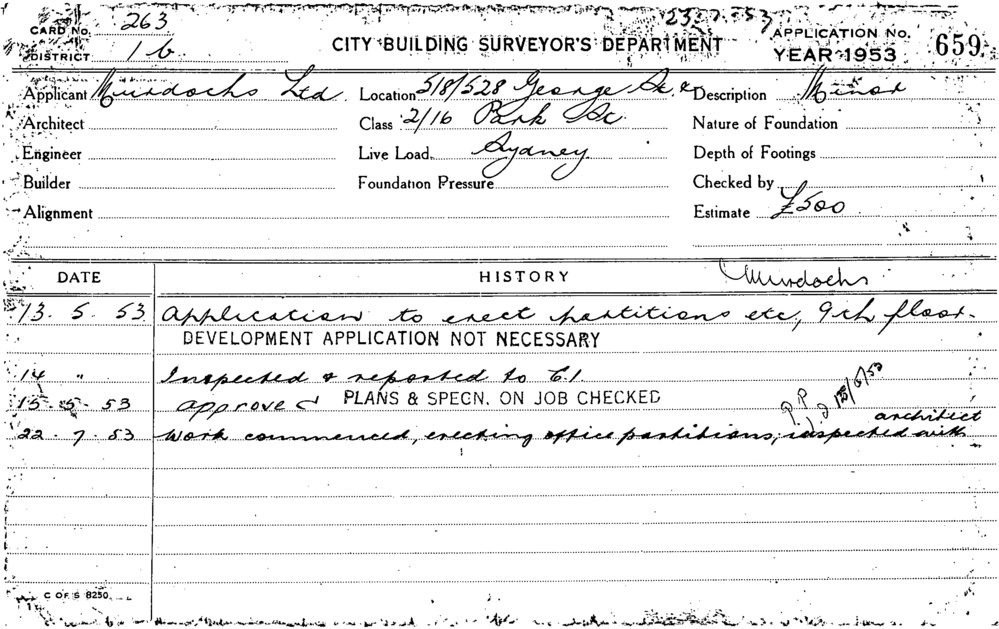 CARD No. 263 23.7.53 APPLICATION No.
DISTRICT 1 b CITY BUILDING SURVEYOR'S DEPARTMENT YEAR 1953 659
Applicant Murdochs Ltd. Location 518/528 George St. & Description Minor
Architect Class 2/16 Park St. Nature of Foundation
Engineer Live Load Sydney Depth of Footings
Builder Foundation Pressure Checked by
Alignment Estimate £500
DATE HISTORY Murdochs
13. 5. 53 Application to erect partitions etc, 9th floor.
DEVELOPMENT APPLICATION NOT NECESSARY
14 " Inspected & reported to C.I.
15. 5. 53 approved PLANS & SPECN. ON JOB CHECKED P.P.
architect
22. 7. 53 Work commenced, erecting office partitions, inspected with
C OF S 8250